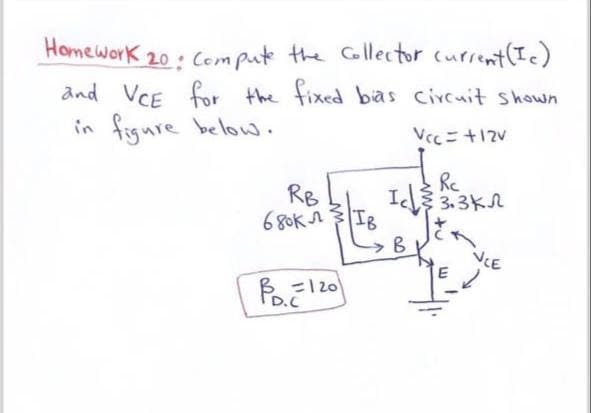 Homework 20 : Compute the Collector current (Ic)
and VCE for the fixed bias circuit shown
in figure below.
Vcc = +12V
Rc
3.3KΩ
Ic
RB
680KΩ
IB
+
C
B
VCE
E
-
βD.C = 120